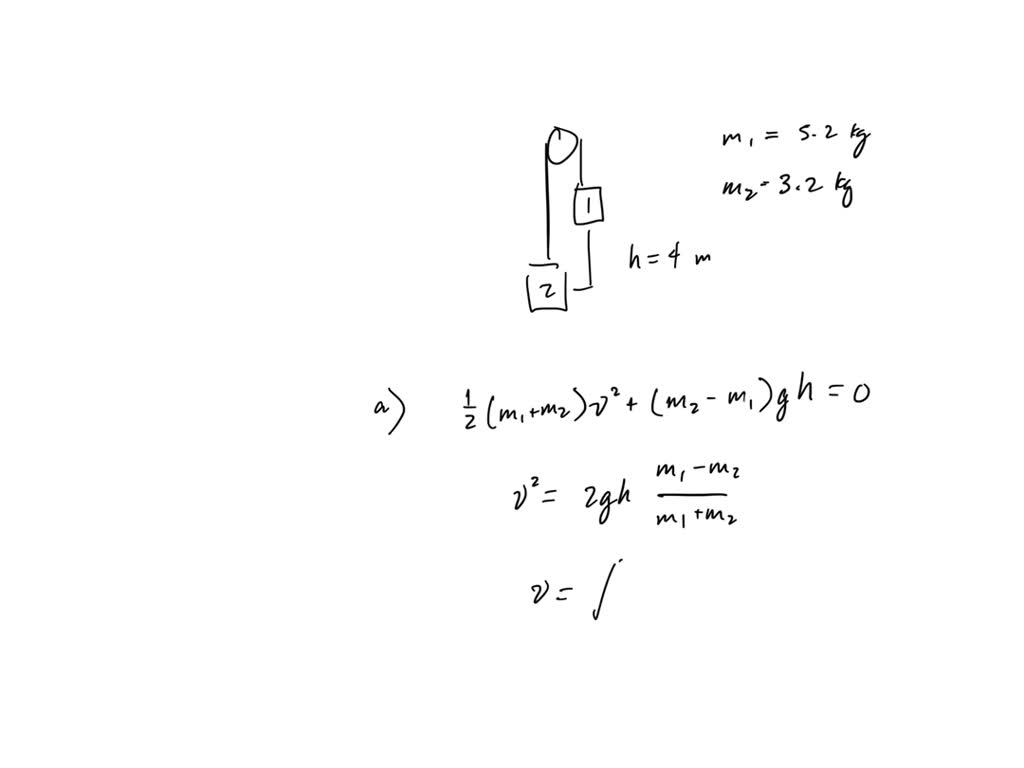 m₁ = 5.2 kg
m₂ = 3.2 kg
1
h = 4 m
2
a) ½(m₁+m₂)v² + (m₂ - m₁)gh = 0
v² = 2gh (m₁ - m₂)/(m₁ + m₂)
v = √